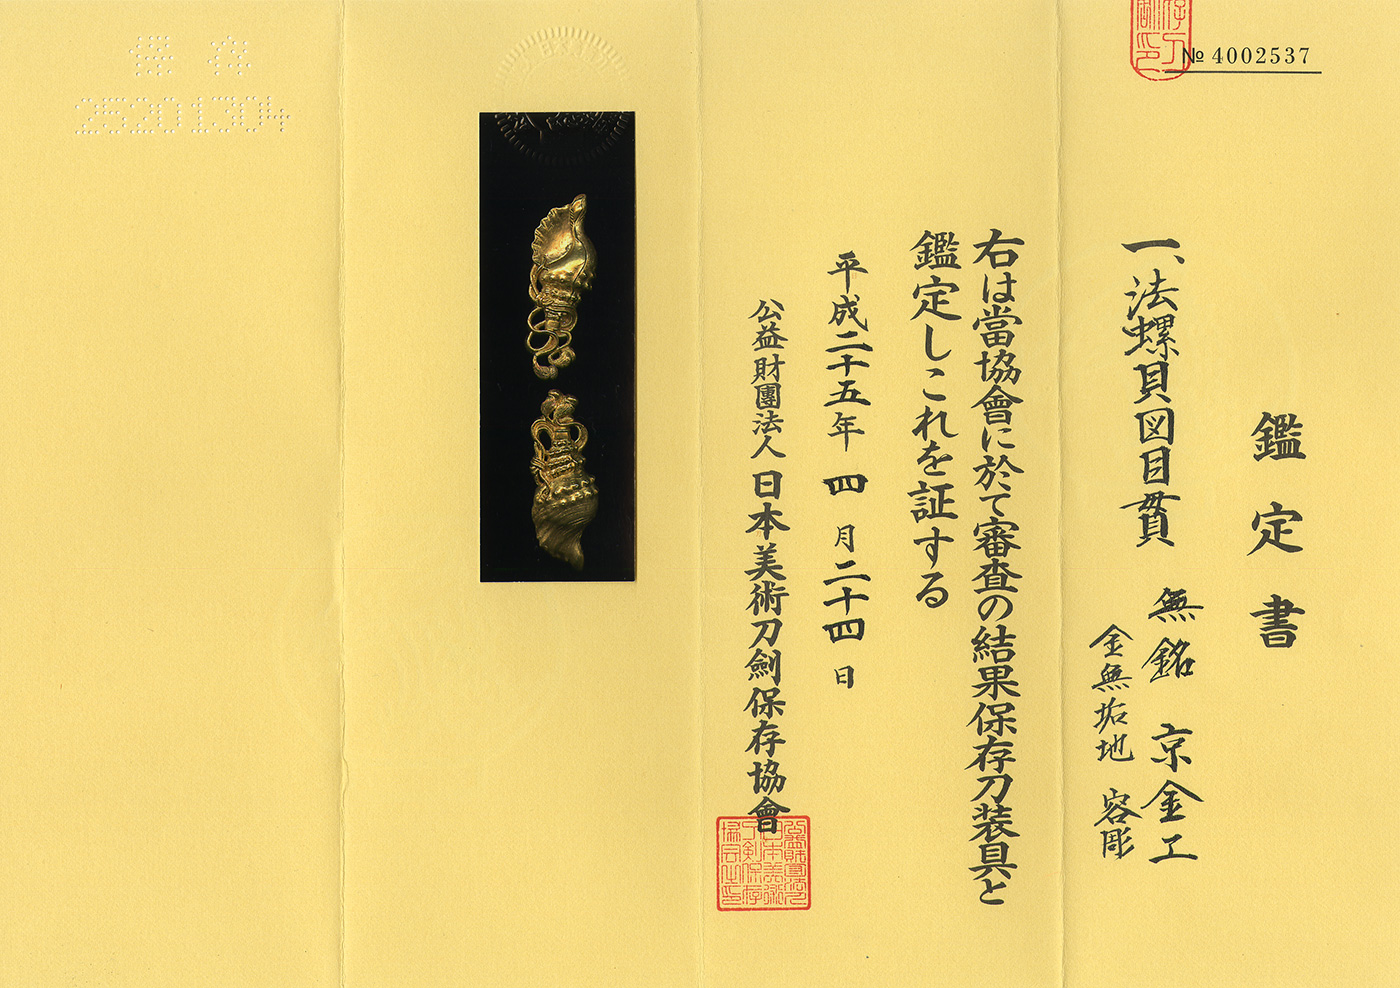 № 4002537
鑑定書
一、法螺貝図目貫 無銘 京金工
金無垢地 容彫
右は當協會に於て審査の結果保存刀装具と
鑑定しこれを証する
平成二十五年 四月二十四日
公益財團法人 日本美術刀劍保存協會
保存
25201304